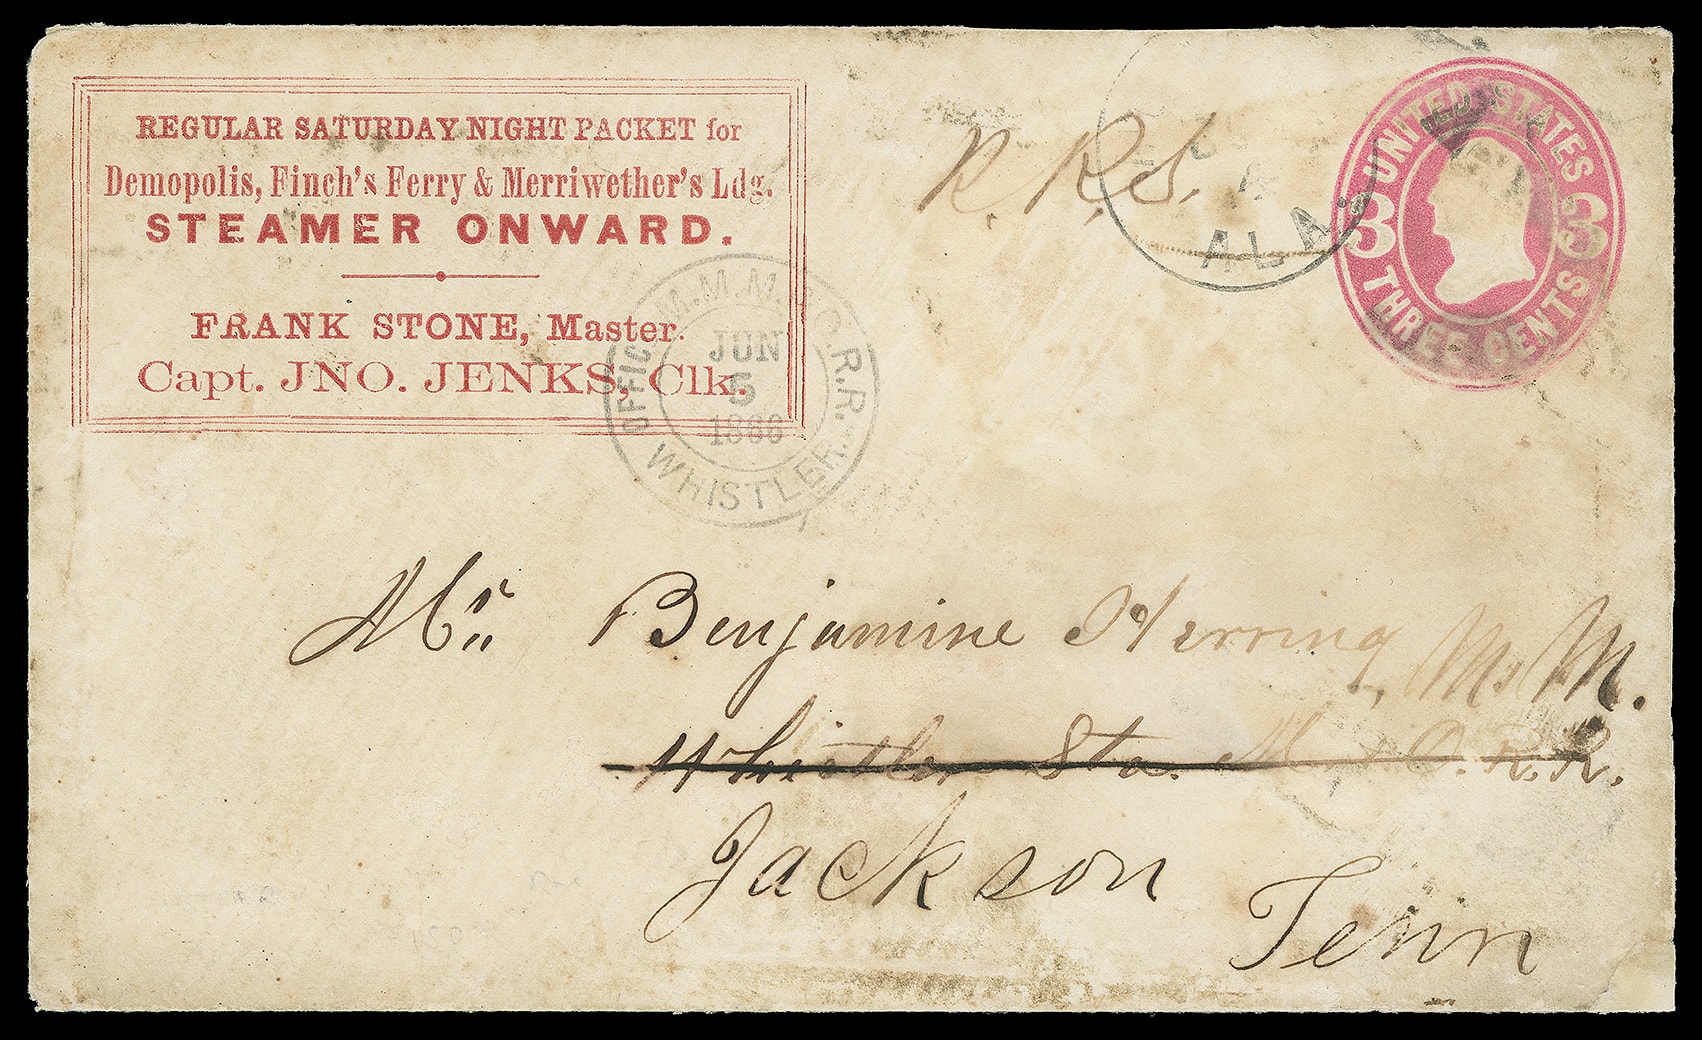 REGULAR SATURDAY NIGHT PACKET for
Demopolis, Finch's Ferry & Merriwether's Ldg.
STEAMER ONWARD.
FRANK STONE, Master.
Capt. JNO. JENKS, Clk.
R. R. S.
ALA.
UNITED STATES
3 3
THREE CENTS
OFFICE M. & O. R. R.
JUN
5
1866
WHISTLER.
Mr. Benjamine Herring, M. M.
Whistler Sta. M & O. R. R.
Jackson
Tenn